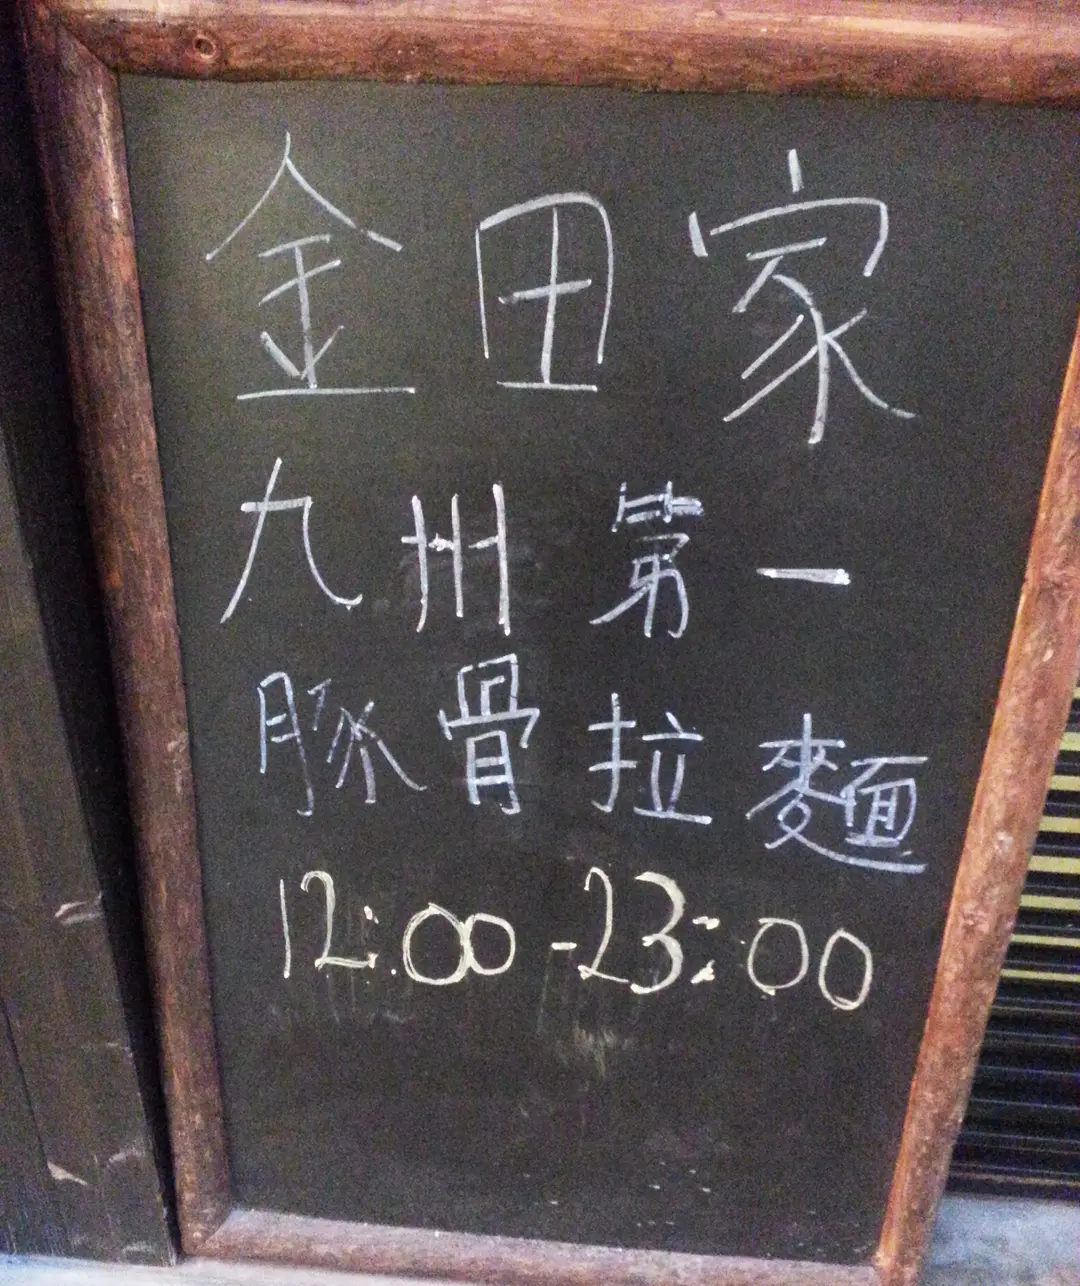 金田家
九州第一
豚骨拉麵
12:00-23:00